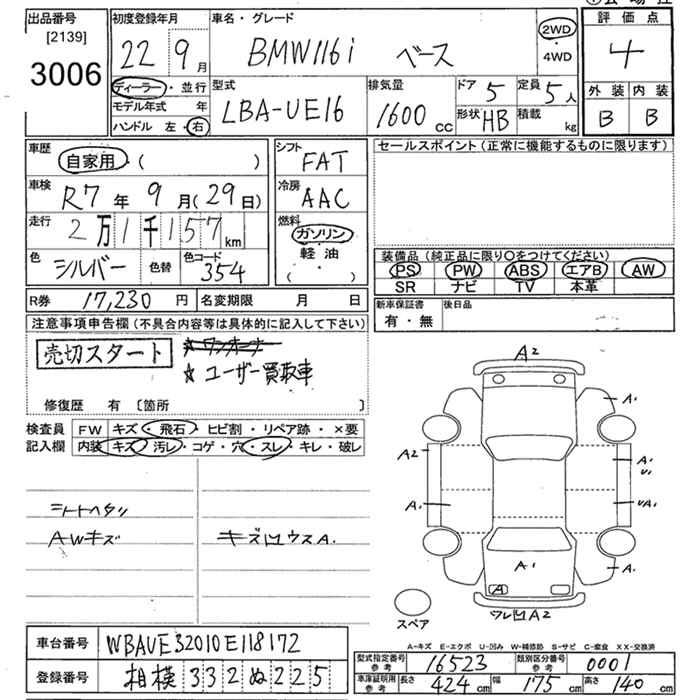 出品番号
[2139]
3006
初度登録年月
22 9月
車名・グレード
BMW116i ベース
2WD
・
4WD
評価点
4
ディーラー・並行
モデル年式 年
ハンドル 左・右
型式
LBA-UE16
排気量
1600cc
ドア 5
定員 5人
形状 HB
積載 kg
外装 内装
B B
車歴
自家用・( )
シフト
FAT
セールスポイント(正常に機能するものに限ります)
車検
R7年9月(29日)
冷房
AAC
走行
2万1千157km
燃料
ガソリン
軽油
( )
色
シルバー
色替
色コード
354
装備品(純正品に限り○をつけてください)
PS PW ABS エアB AW
SR ナビ TV 本革
R券 17,230円 名変期限 月 日
新車保証書
有・無
後日品
注意事項申告欄(不具合内容等は具体的に記入して下さい)
売切スタート
★ワンオーナー
★ユーザー買取車
修復歴 有 〔箇所 〕
検査員
記入欄
FW キズ・飛石・ヒビ割・リペア跡・×要
内装 キズ・汚レ・コゲ・穴・スレ・キレ・破レ
シートヘタリ
AWキズ
キズ凹ウスA.
A2
A1
A2
A1
U1
A1
UA1
A1
A
A1
ワレ凹A2
スペア
A-キズ E-エクボ U-凹み W-補修跡 S-サビ C-腐食 XX-交換済
車台番号 WBAUE32010E118172
登録番号 相模 332 ぬ 225
型式指定番号 参考 16523 類別区分番号 参考 0001
車庫証明用 参考 長さ 424cm 幅 175cm 高さ 140cm